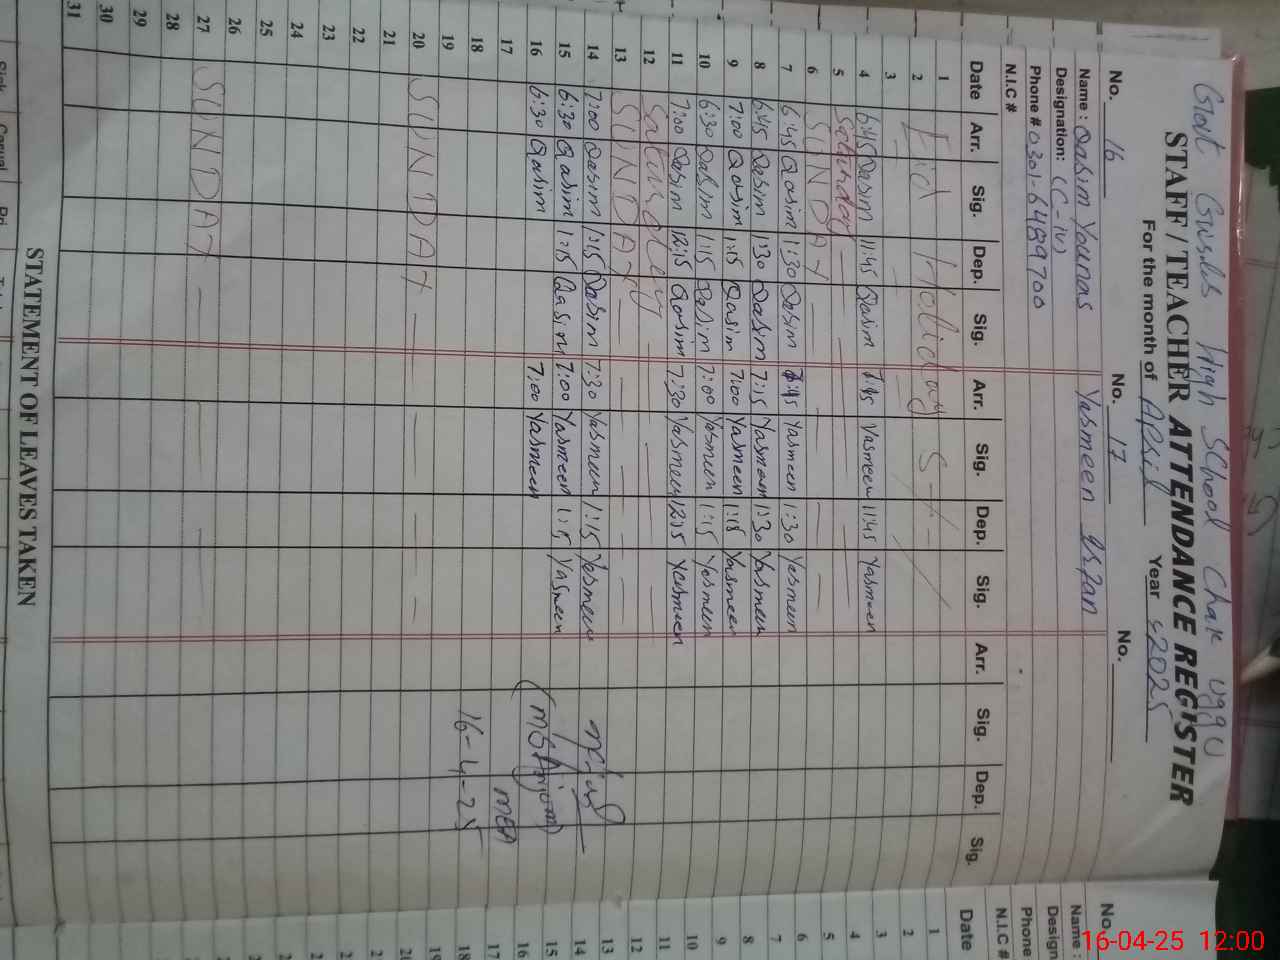 Govt Girls High School Chak Uggu
STAFF / TEACHER ATTENDANCE REGISTER
For the month of April Year 2025
No. 16 No. 17 No.
Name : Qasim Younas Yasmeen Irfan
Designation: (C-IV)
Phone # 0301-6489700
N.I.C #
Date Arr. Sig. Dep. Sig. Arr. Sig. Dep. Sig. Arr. Sig. Dep. Sig.
1
2 Eid Holidays
3
4 6:45 Qasim 11:45 Qasim 7:45 Yasmeen 11:45 Yasmeen
5 Saturday
6 SUNDAY
7 6:45 Qasim 1:30 Qasim 7:45 Yasmeen 1:30 Yasmeen
8 6:45 Qasim 1:30 Qasim 7:15 Yasmeen 1:30 Yasmeen
9 7:00 Qasim 1:15 Qasim 7:00 Yasmeen 1:15 Yasmeen
10 6:30 Qasim 1:15 Qasim 7:00 Yasmeen 1:15 Yasmeen
11 7:00 Qasim 12:15 Qasim 7:30 Yasmeen 12:15 Yasmeen
12 Saturday
13 SUNDAY
14 7:00 Qasim 1:15 Qasim 7:30 Yasmeen 1:15 Yasmeen
15 6:30 Qasim 1:15 Qasim 7:00 Yasmeen 1:15 Yasmeen
16 6:30 Qasim 7:00 Yasmeen
17 MEA
18 16-4-25
19
20 SUNDAY
21
22
23
24
25
26
27 SUNDAY
28
29
30
31
STATEMENT OF LEAVES TAKEN
No.
Name :
Design
Phone
N.I.C #
Date
1
2
3
4
5
6
7
8
9
10
11
12
13
14
15
16
17
18
19
20
16-04-25 12:00